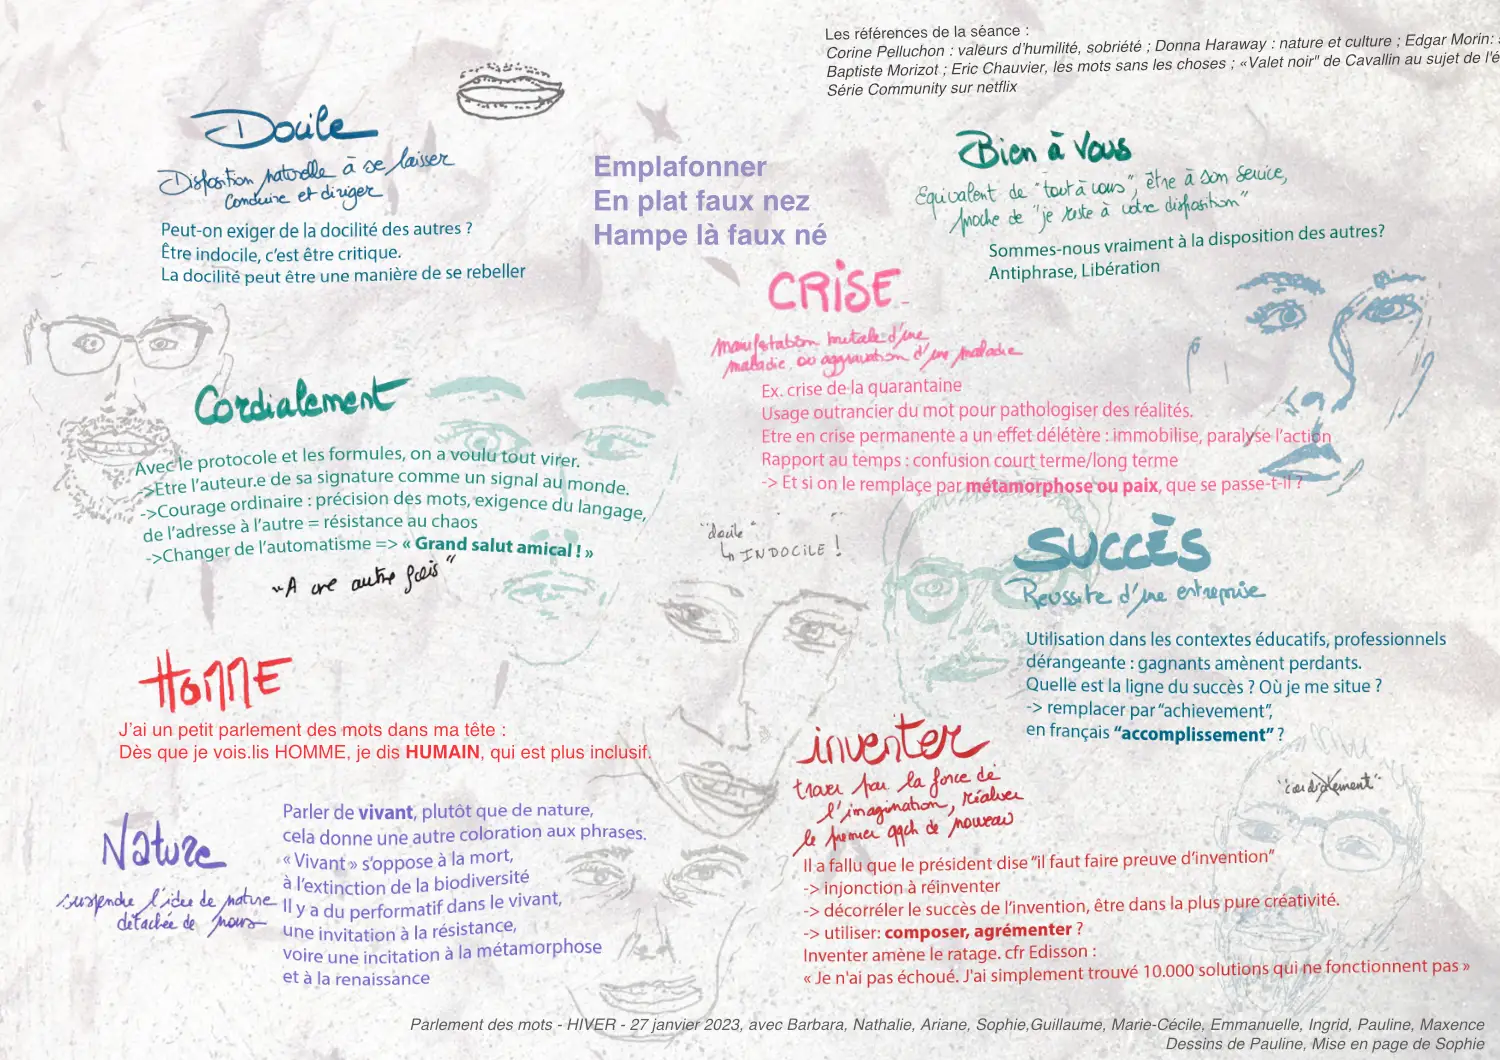 Les références de la séance :
Corine Pelluchon : valeurs d'humilité, sobriété ; Donna Haraway : nature et culture ; Edgar Morin:
Baptiste Morizot ; Eric Chauvier, les mots sans les choses ; «Valet noir" de Cavallin au sujet de l'é
Série Community sur netflix
Docile
Disposition naturelle à se laisser
conduire et diriger
Peut-on exiger de la docilité des autres ?
Être indocile, c'est être critique.
La docilité peut être une manière de se rebeller
Emplafonner
En plat faux nez
Hampe là faux né
Bien à vous
Equivalent de "tout à vous", être à son service,
proche de "je reste à votre disposition"
Sommes-nous vraiment à la disposition des autres?
Antiphrase, Libération
CRISE
manifestation brutale d'une
maladie ou aggravation d'une maladie
Ex. crise de la quarantaine
Usage outrancier du mot pour pathologiser des réalités.
Etre en crise permanente a un effet délétère : immobilise, paralyse l'action
Rapport au temps : confusion court terme/long terme
-> Et si on le remplaçe par métamorphose ou paix, que se passe-t-il ?
Cordialement
Avec le protocole et les formules, on a voulu tout virer.
->Etre l'auteur.e de sa signature comme un signal au monde.
->Courage ordinaire : précision des mots, exigence du langage,
de l'adresse à l'autre = résistance au chaos
->Changer de l'automatisme => « Grand salut amical ! »
"A une autre fois"
"docile"
↳ INDOCILE !
SUCCÈS
Réussite d'une entreprise
Utilisation dans les contextes éducatifs, professionnels
dérangeante : gagnants amènent perdants.
Quelle est la ligne du succès ? Où je me situe ?
-> remplacer par "achievement",
en français "accomplissement" ?
HOMME
J'ai un petit parlement des mots dans ma tête :
Dès que je vois.lis HOMME, je dis HUMAIN, qui est plus inclusif.
inventer
trouver par la force de
l'imagination, réaliser
le premier qqch de nouveau
"cordialement"
Il a fallu que le président dise "il faut faire preuve d'invention"
-> injonction à réinventer
-> décorréler le succès de l'invention, être dans la plus pure créativité.
-> utiliser: composer, agrémenter ?
Inventer amène le ratage. cfr Edisson :
« Je n'ai pas échoué. J'ai simplement trouvé 10.000 solutions qui ne fonctionnent pas »
Nature
suspendre l'idée de nature
détachée de nous
Parler de vivant, plutôt que de nature,
cela donne une autre coloration aux phrases.
« Vivant » s'oppose à la mort,
à l'extinction de la biodiversité
Il y a du performatif dans le vivant,
une invitation à la résistance,
voire une incitation à la métamorphose
et à la renaissance
Parlement des mots - HIVER - 27 janvier 2023, avec Barbara, Nathalie, Ariane, Sophie,Guillaume, Marie-Cécile, Emmanuelle, Ingrid, Pauline, Maxence
Dessins de Pauline, Mise en page de Sophie